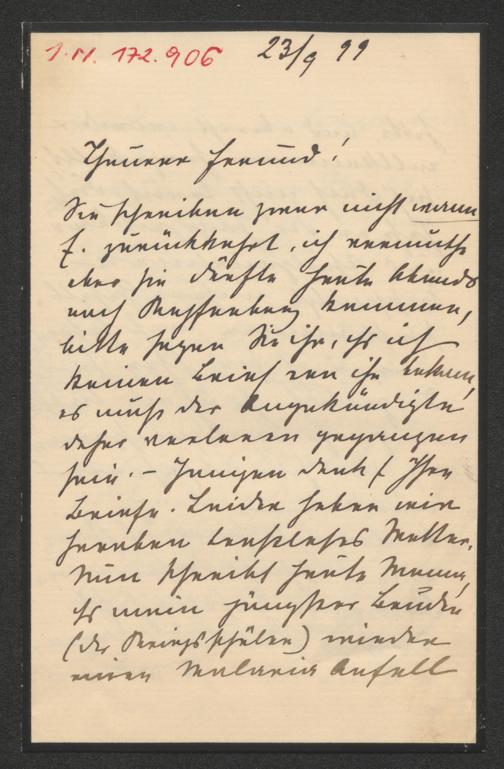 I.N. 172.906
23/9 99
Theurer Freund!
Sie schreiben zwar nicht wann
f. zurückkehrt, ich vermuthe
aber sie dürfte heute Abends
nach kommen,
bitte sagen Sie ihr, dß ich
keinen Brief von ihr bekam,
es muß der Angekündigte
daher verloren gegangen
sein. – Innigen Dank f. Ihre
Briefe. Leider haben wir
trostloses Wetter.
Nun schreibt heute Mama,
dß mein jüngster Bruder
(der Kriegsschüler) wieder
einen Malaria Anfall